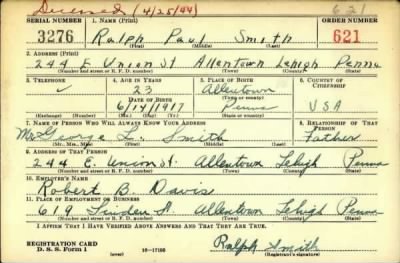 Deceased (4/25/44) 621
SERIAL NUMBER 1. NAME (Print) ORDER NUMBER
3276 Ralph Paul Smith 621
(First) (Middle) (Last)
2. ADDRESS (Print)
244 E Union St Allentown Lehigh Penna
(Number and street or R. F. D. number) (Town) (County) (State)
3. TELEPHONE 4. AGE IN YEARS 5. PLACE OF BIRTH 6. COUNTRY OF CITIZENSHIP
23 Allentown
(Town or county)
DATE OF BIRTH
6/14/1917 Penna USA
(Exchange) (Number) (Mo.) (Day) (Yr.) (State or country)
7. NAME OF PERSON WHO WILL ALWAYS KNOW YOUR ADDRESS 8. RELATIONSHIP OF THAT PERSON
Mr George L. Smith Father
(Mr., Mrs., Miss) (First) (Middle) (Last)
9. ADDRESS OF THAT PERSON
244 E. Union St. Allentown Lehigh Penna
(Number and street or R. F. D. number) (Town) (County) (State)
10. EMPLOYER'S NAME
Robert B. Davis
11. PLACE OF EMPLOYMENT OR BUSINESS
619 Linden St. Allentown Lehigh Penna
(Number and street or R. F. D. number) (Town) (County) (State)
I AFFIRM THAT I HAVE VERIFIED ABOVE ANSWERS AND THAT THEY ARE TRUE.
REGISTRATION CARD
D. S. S. Form 1 (over) 16-17105 Ralph Smith
(Registrant's signature)